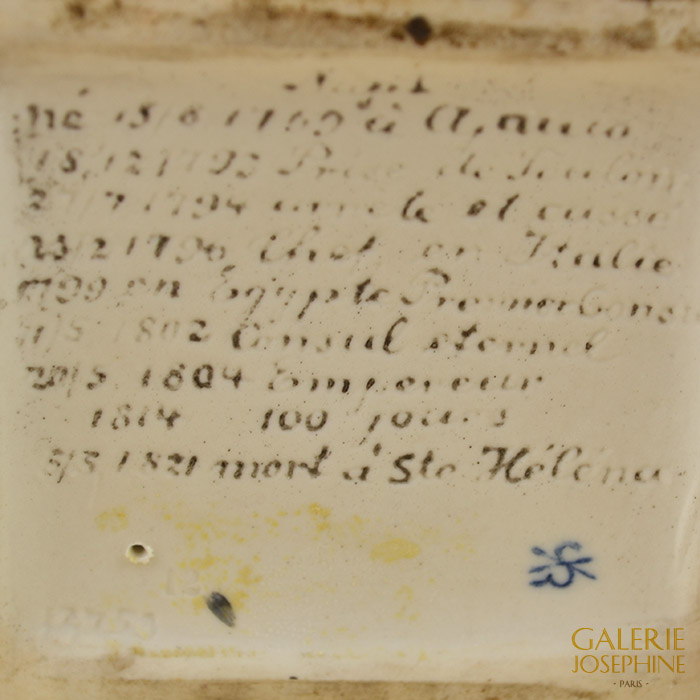 né 15/8 1769 à Ajaccio
18/12 1793 Prise de Toulon
27/7 1794 et
23/2 1796 Chef en Italie
en Egypte Premier Consul
1802 Consul eternel
20/5 1804 Empereur
1814 100 jours
5/5 1821 mort à Ste Héléna
GALERIE
JOSEPHINE
- PARIS -